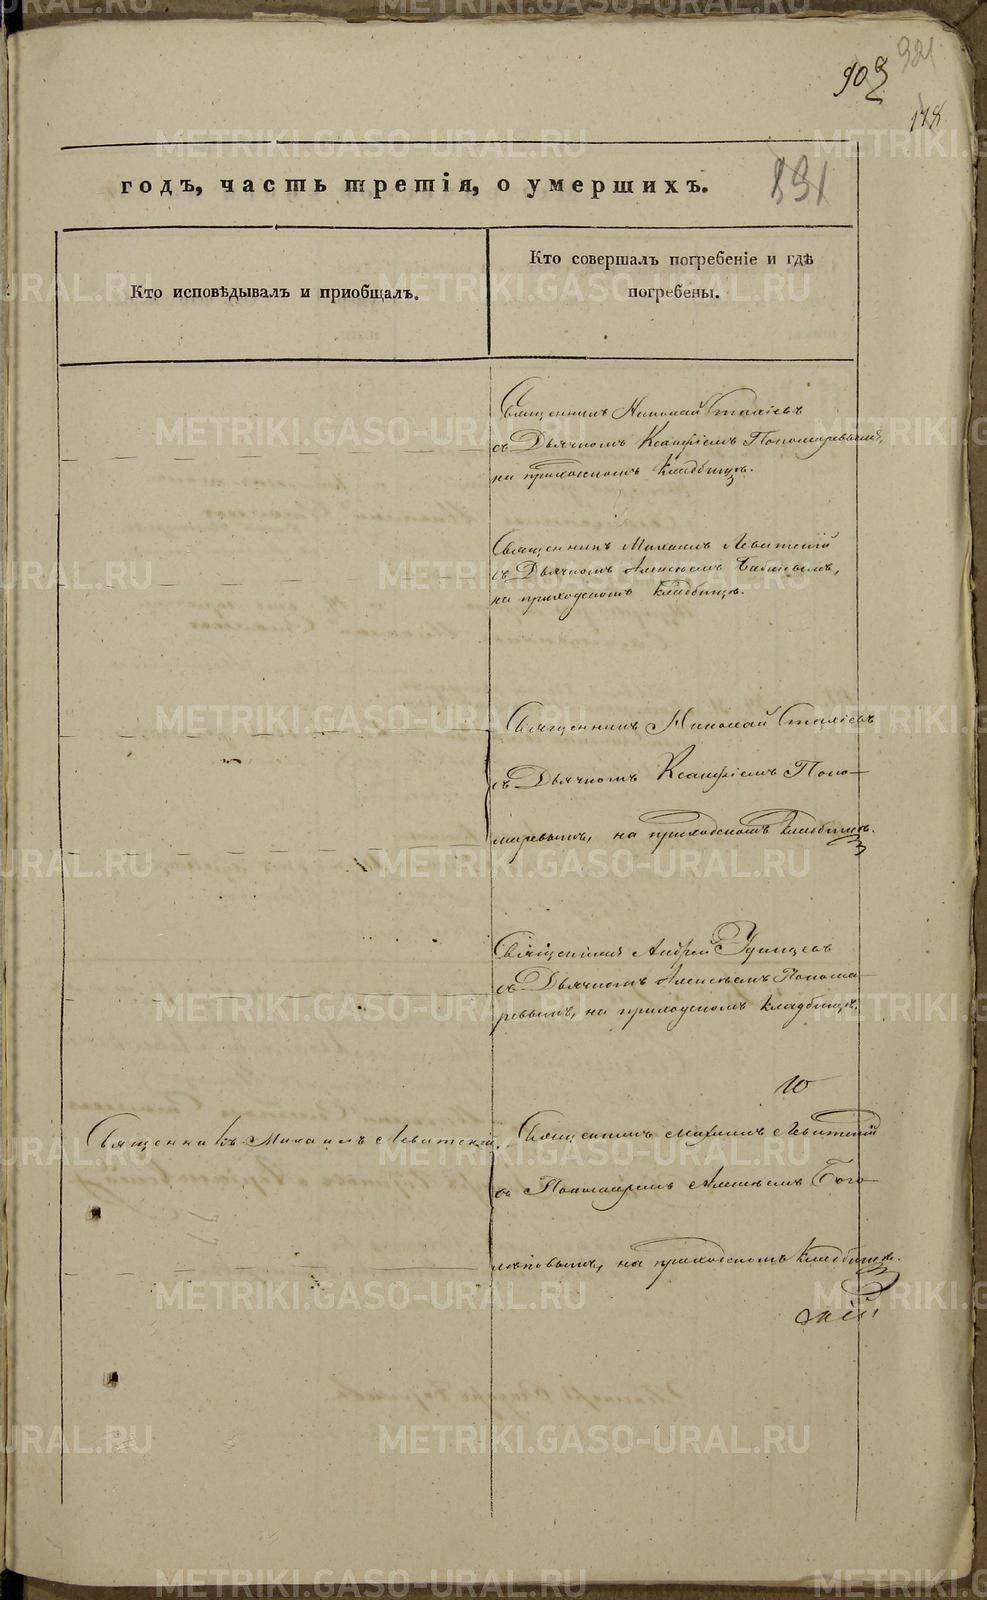 903
321
178
годъ, часть третія, о умершихъ.
831
Кто исповѣдывалъ и пріобщалъ.
Кто совершалъ погребеніе и гдѣ
погребены.
Священникъ Николай Стахіевъ
съ Дьячкомъ Ксанфіемъ Пономаревымъ,
на приходскомъ кладбищѣ.
Священникъ Михаилъ Левитскій
съ Дьячкомъ Алексѣемъ
на приходскомъ кладбищѣ.
Священникъ Николай Стахіевъ
съ Дьячкомъ Ксанфіемъ Поно-
маревымъ, на приходскомъ кладбищѣ.
Священникъ Андрей Удинцевъ
съ Дьячкомъ Алексѣемъ Понома-
ревымъ, на приходскомъ кладбищѣ.
Священникъ Михаилъ Левитскій.
Священникъ Михаилъ Левитскій
съ Пономаремъ Алексѣемъ Бого-
лѣповымъ, на приходскомъ кладбищѣ.
METRIKI.GASO-URAL.RU